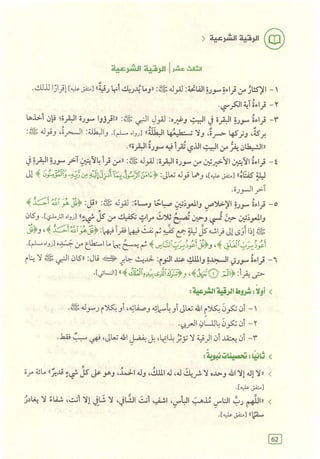 الرقية الشرعية
الثالث عشر | الرقية الشرعية
١- الإكثار من قراءة سورة الفاتحة: لقوله ﷺ: «وما يُدريك أنها رقية» [متفق عليه] إقرارًا لذلك.
٢- قراءة آية الكرسي.
٣- قراءة سورة البقرة في البيت وغيره: لقول النبي ﷺ: «اقرؤوا سورة البقرة؛ فإن أخذها
بركةٌ، وتركها حسرةٌ، ولا تستطيعها البطلة» [رواه مسلم]. والبطلة: السحرة، وقوله ﷺ:
«الشيطان يفرُّ من البيت الذي تُقرأ فيه سورة البقرة».
٤- قراءة الآيتين الأخيرتين من سورة البقرة: لقوله ﷺ: «من قرأ بالآيتين آخر سورة البقرة في
ليلةٍ كفتاه» [متفق عليه]، وهما قوله تعالى: ﴿ءَامَنَ ٱلرَّسُولُ بِمَآ أُنزِلَ إِلَيْهِ مِن رَّبِّهِۦ وَٱلْمُؤْمِنُونَ﴾ إلى
آخر السورة.
٥- قراءة سورة الإخلاص والمعوذتين صباحًا ومساءً: لقوله ﷺ: «قل: ﴿قُلْ هُوَ ٱللَّهُ أَحَدٌ﴾
والمعوذتين حينَ تُمسي وحين تُصبحُ ثلاثَ مراتٍ تكفيك من كلِّ شيءٍ» [رواه الترمذي]. وكان
ﷺ إذا أوى إلى فراشه كلَّ ليلةٍ جمع كفيه ثم نفث فيهما فقرأ فيهما: ﴿قُلْ هُوَ ٱللَّهُ أَحَدٌ﴾، و﴿قُلْ
أَعُوذُ بِرَبِّ ٱلْفَلَقِ﴾، و﴿قُلْ أَعُوذُ بِرَبِّ ٱلنَّاسِ﴾ ثم يمسح بهما ما استطاع من جسده [رواه مسلم].
٦- قراءة سورتي السجدة والملك عند النوم: لحديث جابر قال: «كان النبي ﷺ لا ينام
حتى يقرأ: ﴿الٓمٓ ۝١ تَنزِيلُ﴾، و﴿تَبَٰرَكَ ٱلَّذِى بِيَدِهِ ٱلْمُلْكُ﴾» [النسائي].
أولًا: شروط الرقية الشرعية:
١- أن تكون بكلام الله تعالى أو بأسمائه وصفاته، أو بكلام رسوله ﷺ.
٢- أن تكون باللسان العربي.
٣- أن يعتقد أن الرقية لا تؤثر بذاتها، بل بفضل الله تعالى، فهي سبب فقط.
ثانيًا: تحصينات نبوية:
«لا إله إلا الله وحده لا شريك له، له الملك، وله الحمد، وهو على كل شيءٍ قدير» مائة مرة
[متفق عليه].
«اللهم رب الناس مُذهب البأس، اشفِ أنت الشافي، لا شافي إلا أنت، شفاءً لا يغادر
سقمًا» [متفق عليه].
62